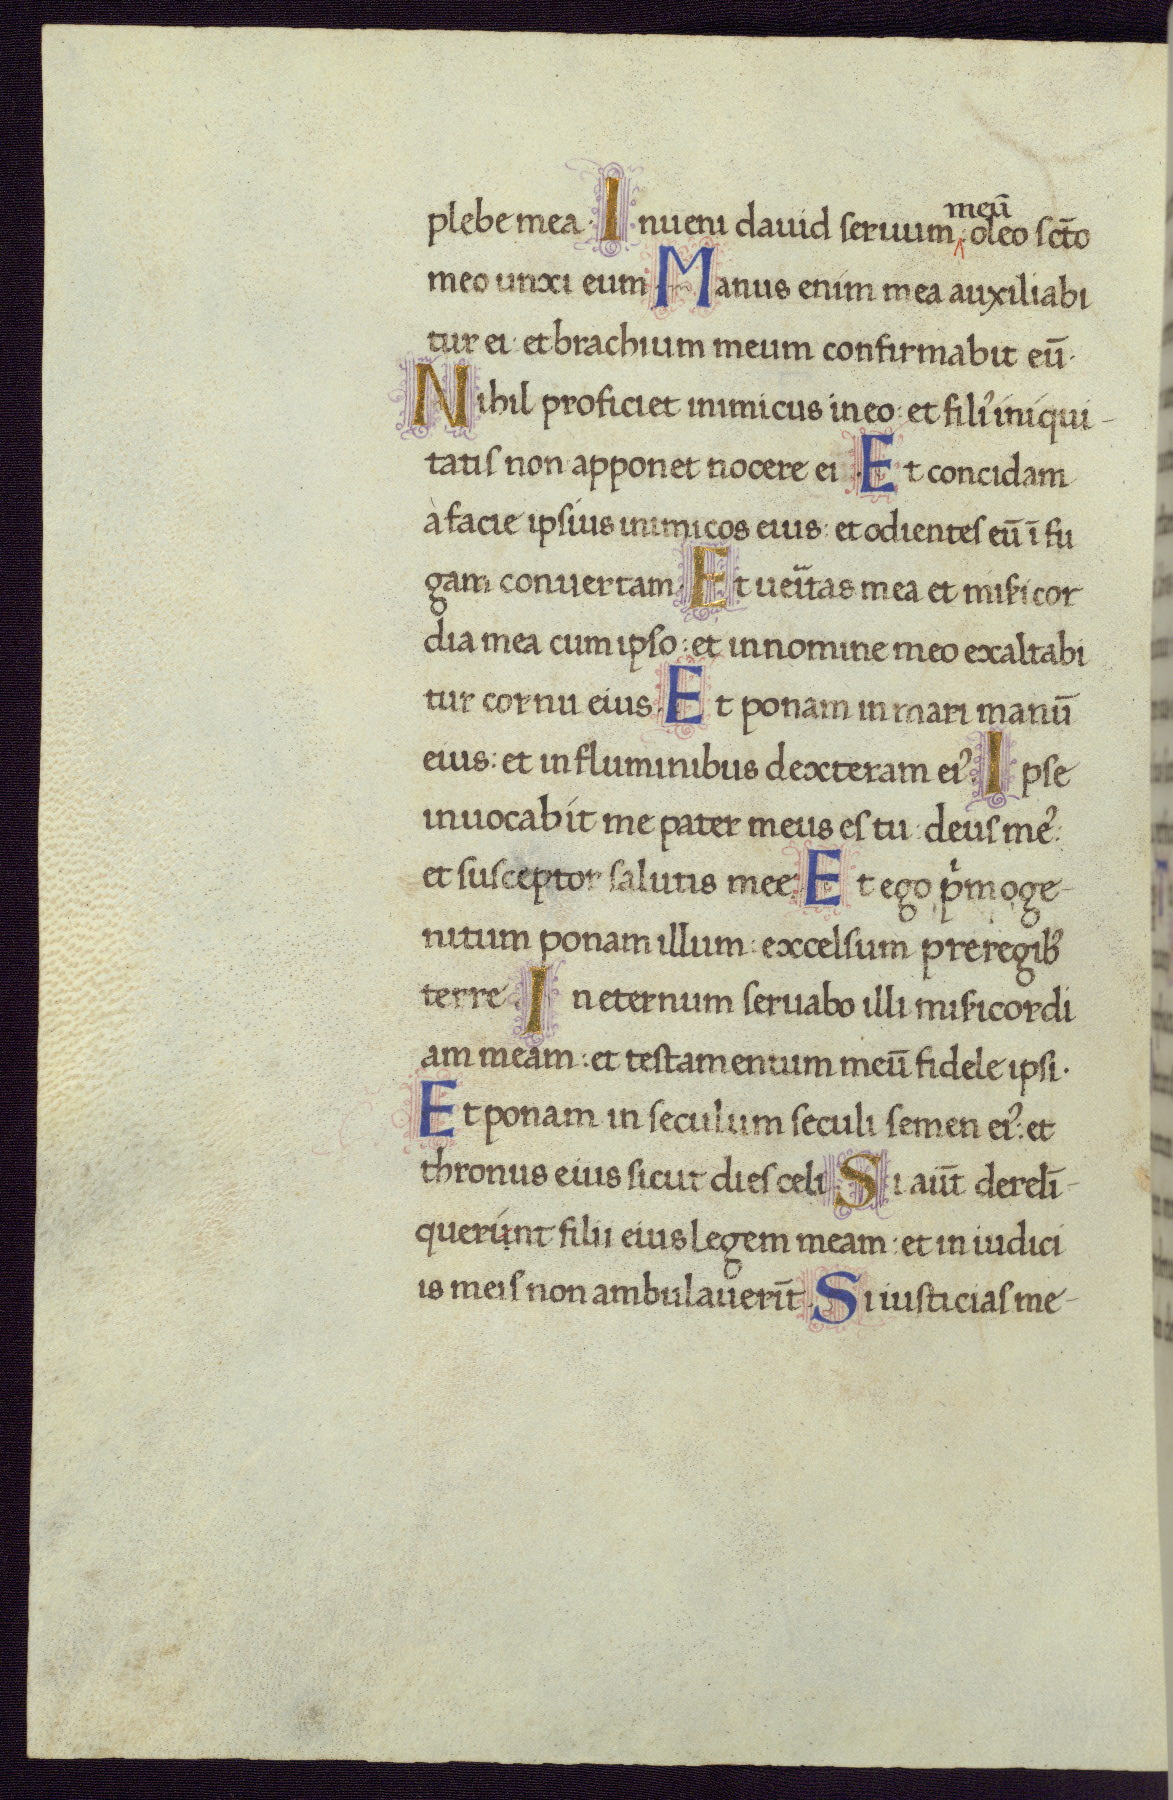 plebe mea · Inueni dauid seruum meū oleo sc̄to
meo unxi eum · Manus enim mea auxiliabi
tur ei · et brachium meum confirmabit eū ·
Nihil proficiet inimicus in eo : et filiꝰ iniqui-
tatis non apponet nocere ei · Et concidam
a facie ipsius inimicos eius : et odientes eū ī fu
gam conuertam · Et ueītas mea et miẜicor
dia mea cum ipso : et in nomine meo exaltabi
tur cornu eius · Et ponam in mari manū
eius : et in fluminibus dexteram eiꝰ · Ipse
inuocabit me pater meus es tu : deus meꝰ :
et susceptor salutis mee : Et ego pͥmoge-
nitum ponam illum : excelsum pre regibꝰ
terre · In eternum seruabo illi miẜicordi
am meam : et testamentum meū fidele ipsi ·
Et ponam in seculum seculi semen eiꝰ : et
thronus eius sicut dies celi · Si aūt derelī-
querunt filii eius legem meam : et in iudici
is meis non ambulauerīt · Si iusticias me-